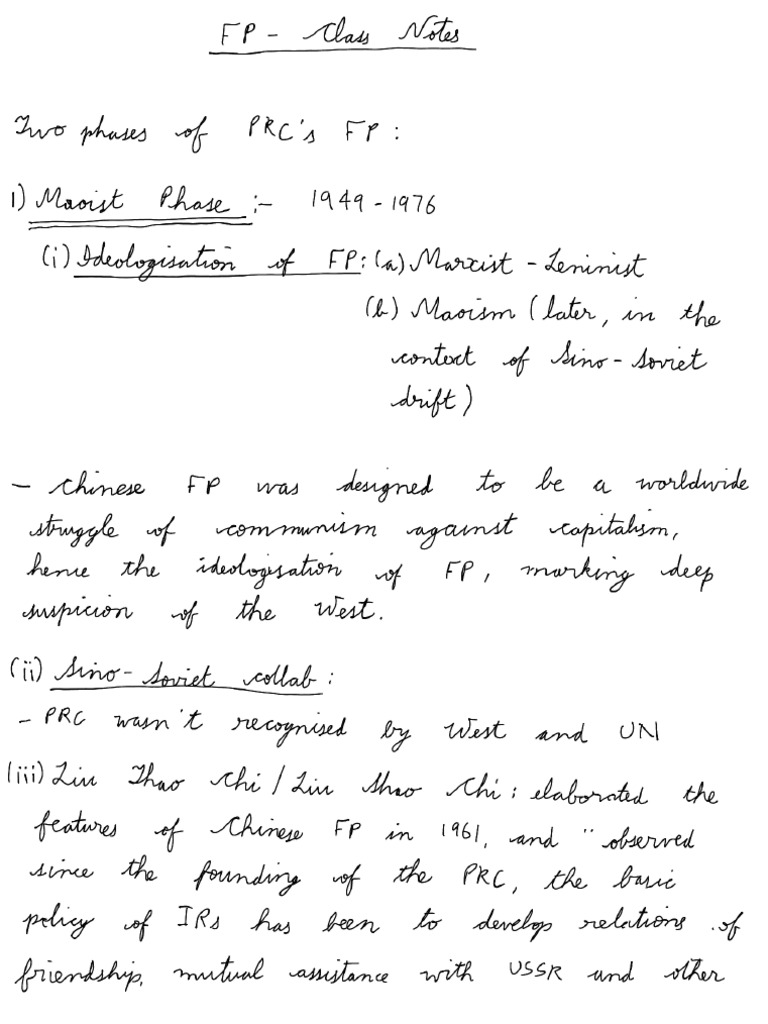 FP - Class Notes
Two phases of PRC's FP :
1) Maoist Phase :- 1949 - 1976
(i) Ideologisation of FP: (a) Marxist - Leninist
(b) Maoism (later, in the
context of Sino - Soviet
drift)
- Chinese FP was designed to be a worldwide
struggle of communism against capitalism,
hence the ideologisation of FP, marking deep
suspicion of the West.
(ii) Sino - Soviet collab :
- PRC wasn't recognised by West and UN
(iii) Liu Thao Chi / Liu Shao Chi : elaborated the
features of Chinese FP in 1961, and "observed
since the founding of the PRC, the basic
policy of IRs has been to develop relations of
friendship, mutual assistance with USSR and other